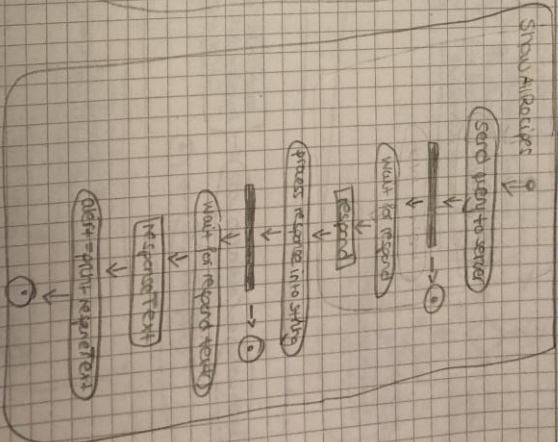 ShowAllRecipes
Send query to server
wait for respond
respond
process response into string
wait for respond text
responseText
alert = print responseText